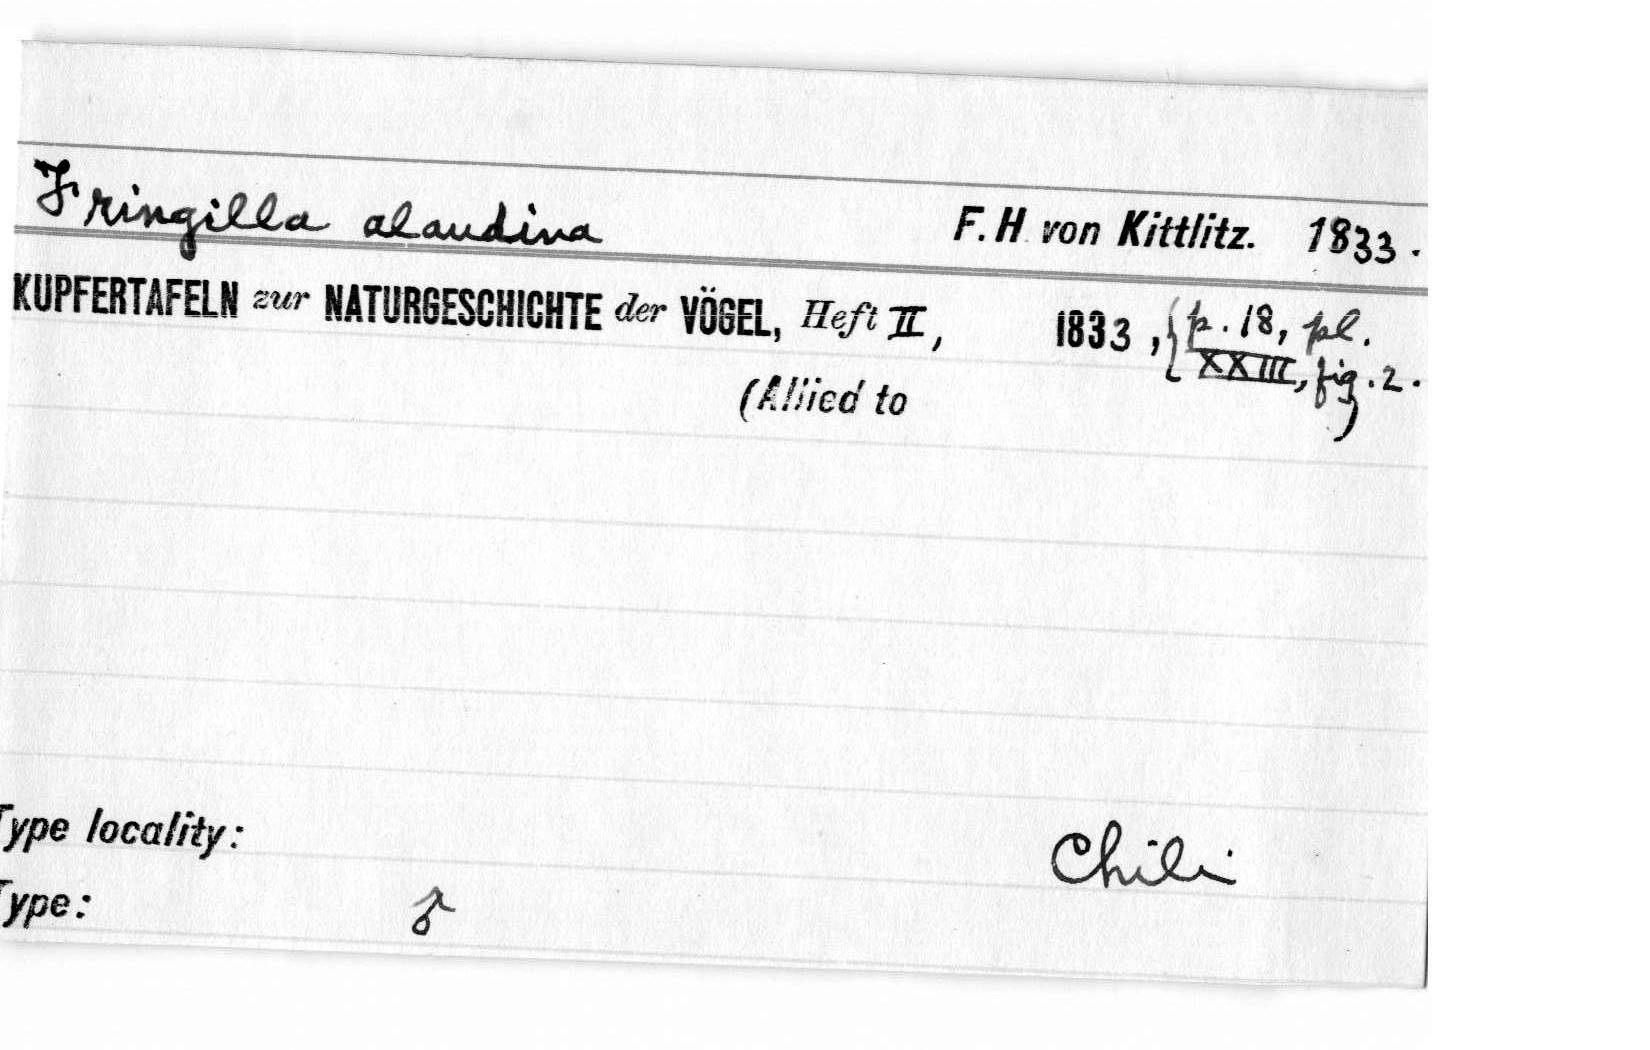 Fringilla alaudina F. H. von Kittlitz. 1833.
KUPFERTAFELN zur NATURGESCHICHTE der VÖGEL, Heft II, 1833, { p. 18, pl.
XXIII, fig. 2.
(Allied to )
Type locality: Chili
Type: ♂